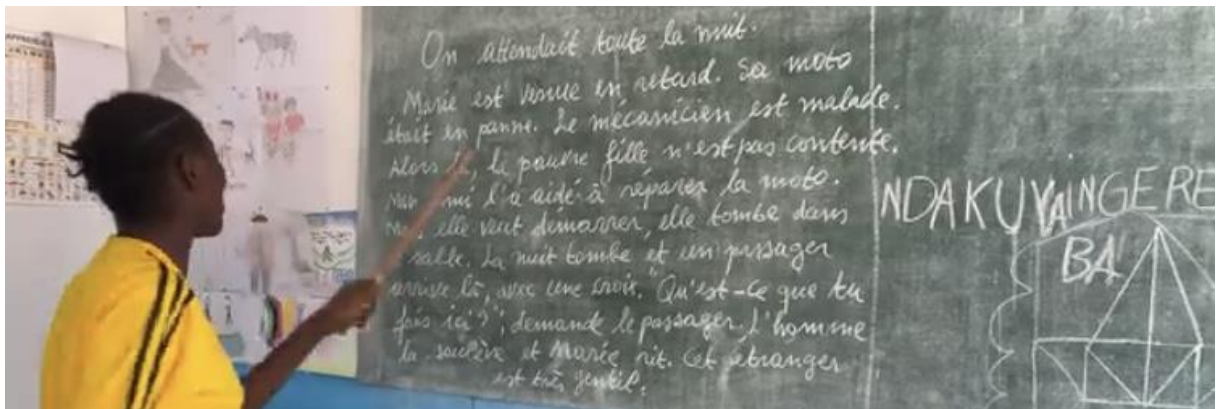 On attendait toute la nuit.
Marie est venue en retard. Sa moto
était en panne. Le mécanicien est malade.
Alors là, la pauvre fille n'est pas contente.
Mon ami l'a aidé à réparer la moto.
elle veut démarrer, elle tombe dans
salle. La nuit tombe et un passager
arrive là, avec une croix. "Qu'est-ce que tu
fais ici?", demande le passager. L'homme
la soulève et Marie rit. Cet étranger
est très gentil.
NDAKUVAINGERE
BA